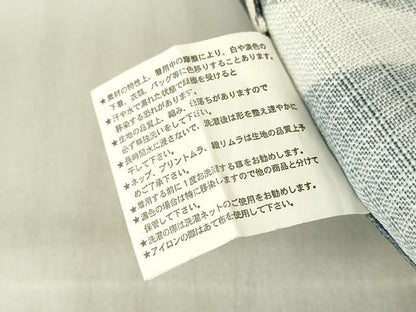 ★素材の特性上、着用中の摩擦により、白や淡色の
下着、衣類、バッグ等に色移りすることあります。
★汗や水で濡れた状態で摩擦を受けると
移染する恐れがあります。
★生地の品質上、縮み、色落ちがありますので
必ず単独洗いをして下さい。
★長時間水に浸さないで、洗濯後は形を整え速やかに
干して下さい。
★ネップ、プリントムラ、織りムラは生地の品質上予
めご了承下さい。
★着用する前に1度お洗濯する事をお勧めします。
★濃色の場合は特に移染しますので他の商品と分けて
保管して下さい。
★洗濯の際は洗濯ネットのご使用をお勧めします。
★アイロンの際はあて布を使用して下さい。